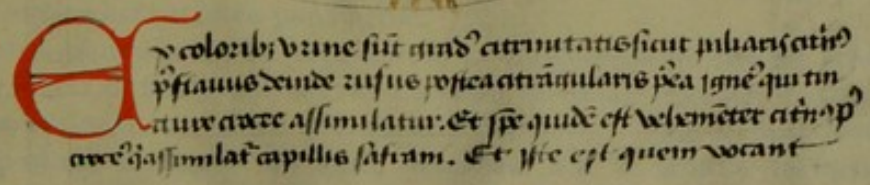 Ex colorib; vrine sūt grad᾽ citrinitatis sicut paliaris citrī᾽
p᾽ flauus deinde rufus postea citrāgularis p᾽ea igne᾽ qui tin
ture croce assimulatur. Et spē quidē est vehemētet citrī᾽ p᾽
croce᾽ q̄ assimulat᾽ capillis safram. Et iste est quem vocant